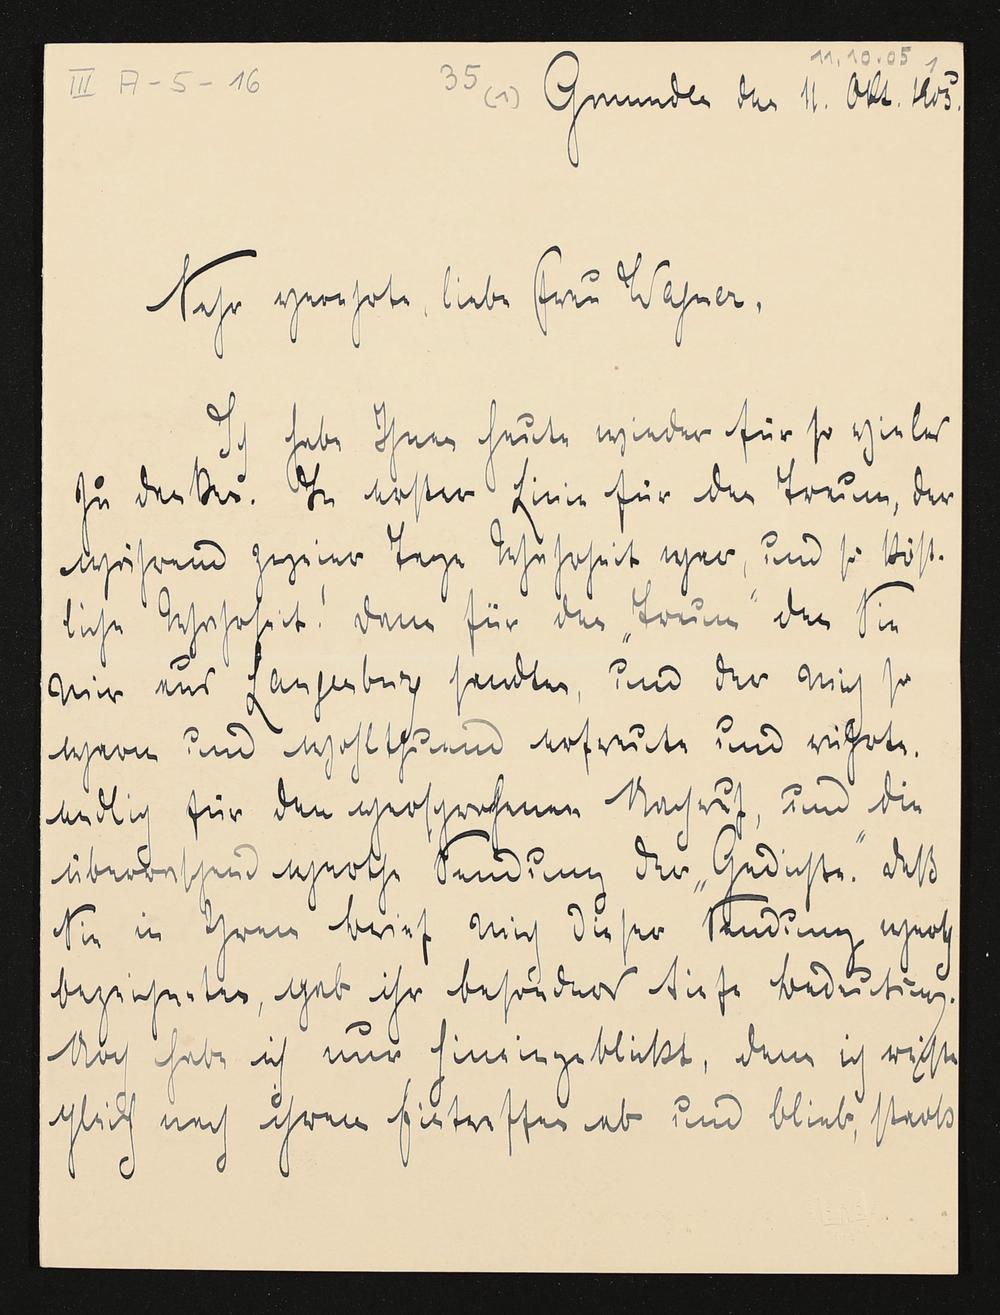 III A-5-16
35
(1)
11.10.05
1
Gmunden den 11. Okt. 1905.
Sehr verehrte, liebe Frau Wagner,
Ich habe Ihnen heute wieder für so vieles
zu danken. In erster Linie für den Traum, der
während zweier Tage Wahrheit war, und so köst-
liche Wahrheit! Dann für den „Traum" den Sie
mir aus Langenburg sandten, und der mich so
warm und wohlthuend erfreute und rührte.
endlich für den versprochenen Nachruf, und die
überraschend werthe Sendung der „Gedichte." daß
Sie in Ihrem brief mich dieser Sendung werth
bezeichneten, gab ihr besonders tiefe bedeutung.
Noch habe ich nur hineingeblickt, denn ich reiste
gleich nach ihrem Eintreffen ab und blieb, stark